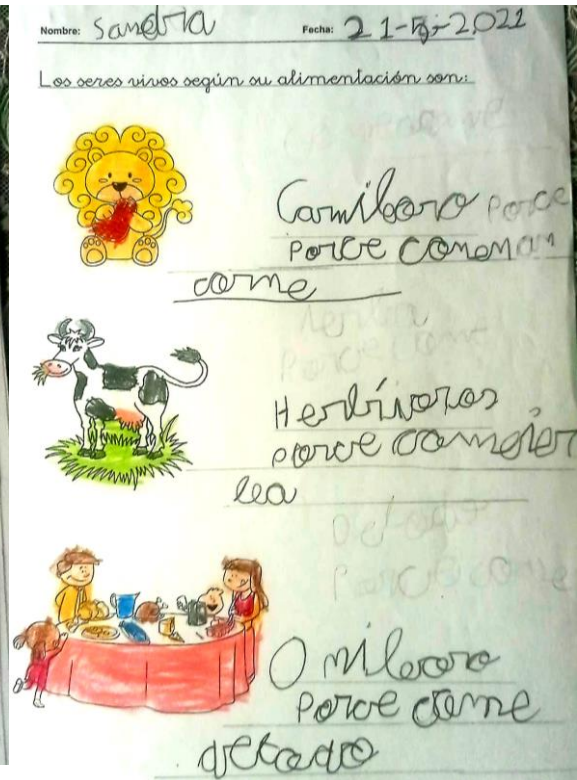 Nombre: Sandra Fecha: 21-5-2021
Los seres vivos según su alimentación son:
Carniboro porce
porce comen
carne
Herbívoros
porce comejer
lea
Omiloro
porce come